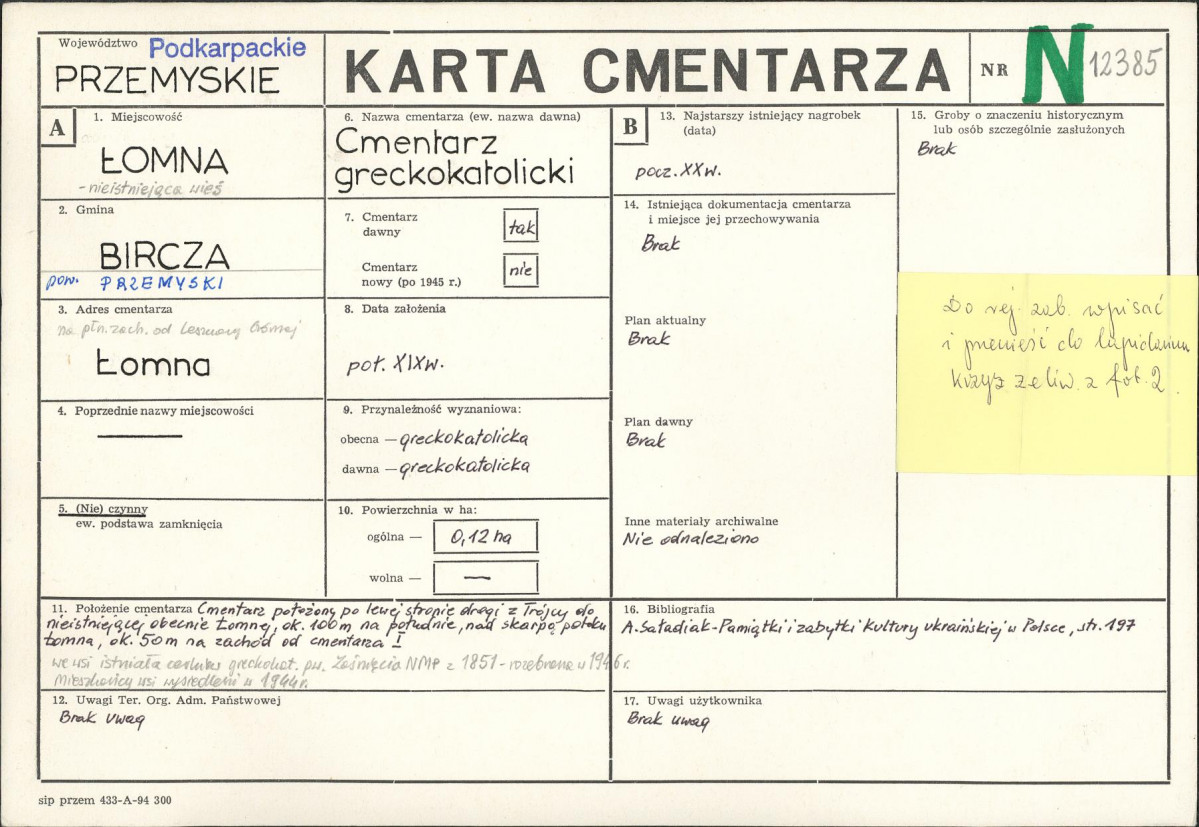 Województwo Podkarpackie
PRZEMYSKIE
KARTA CMENTARZA
NR N 12385
A
1. Miejscowość
ŁOMNA
- nieistniejąca wieś
2. Gmina
BIRCZA
pow. PRZEMYSKI
3. Adres cmentarza
na płn. zach. od Leszczawy Górnej
Łomna
4. Poprzednie nazwy miejscowości
—
5. (Nie) czynny
ew. podstawa zamknięcia
6. Nazwa cmentarza (ew. nazwa dawna)
Cmentarz
greckokatolicki
7. Cmentarz
dawny
tak
Cmentarz
nowy (po 1945 r.)
nie
8. Data założenia
poł. XIXw.
9. Przynależność wyznaniowa:
obecna — greckokatolicka
dawna — greckokatolicka
10. Powierzchnia w ha:
ogólna — 0,12 ha
wolna — —
B
13. Najstarszy istniejący nagrobek
(data)
pocz. XXw.
14. Istniejąca dokumentacja cmentarza
i miejsce jej przechowywania
Brak
Plan aktualny
Brak
Plan dawny
Brak
Inne materiały archiwalne
Nie odnaleziono
15. Groby o znaczeniu historycznym
lub osób szczególnie zasłużonych
Brak
Do rej. zab. wpisać
i przenieść do lapidarium
krzyż żeliw. z fot. 2.
11. Położenie cmentarza Cmentarz położony po lewej stronie drogi z Trójcy do
nieistniejącej obecnie Łomnej, ok. 100m na południe, nad skarpą potoku
Łomna, ok. 50m na zachód od cmentarza I
we wsi istniała cerkiew greckokat. pw. Zaśnięcia NMP z 1851 - rozebrana w 1946 r.
Mieszkańcy wsi wysiedleni w 1944r.
16. Bibliografia
A. Saładiak - Pamiątki i zabytki kultury ukraińskiej w Polsce, str. 197
12. Uwagi Ter. Org. Adm. Państwowej
Brak uwag
17. Uwagi użytkownika
Brak uwag
sip przem 433-A-94 300